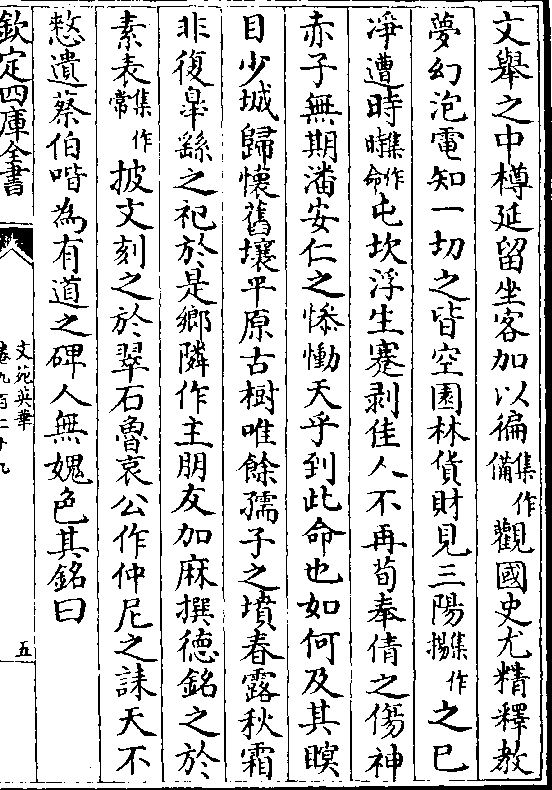 文舉之中樽延留坐客加以徧集作備觀國史尤精釋教
夢幻泡電知一切之皆空園林貨財見三陽集作揚之已
凈遭時集作時命屯坎浮生蹇剥佳人不再荀奉倩之傷神
赤子無期潘安仁之悕慟天乎到此命也如何及其瞑
目少城歸懷舊壤平原古樹唯餘孺子之墳春露秋霜
非復臯繇之祀於是鄉隣作主朋友加麻撰德銘之於
素表集作常披文刻之於翠石魯哀公作仲尼之誄天不
憗遺蔡伯喈為有道之碑人無媿色其銘曰
欽定四庫全書
文苑英華
卷九百二十九
五